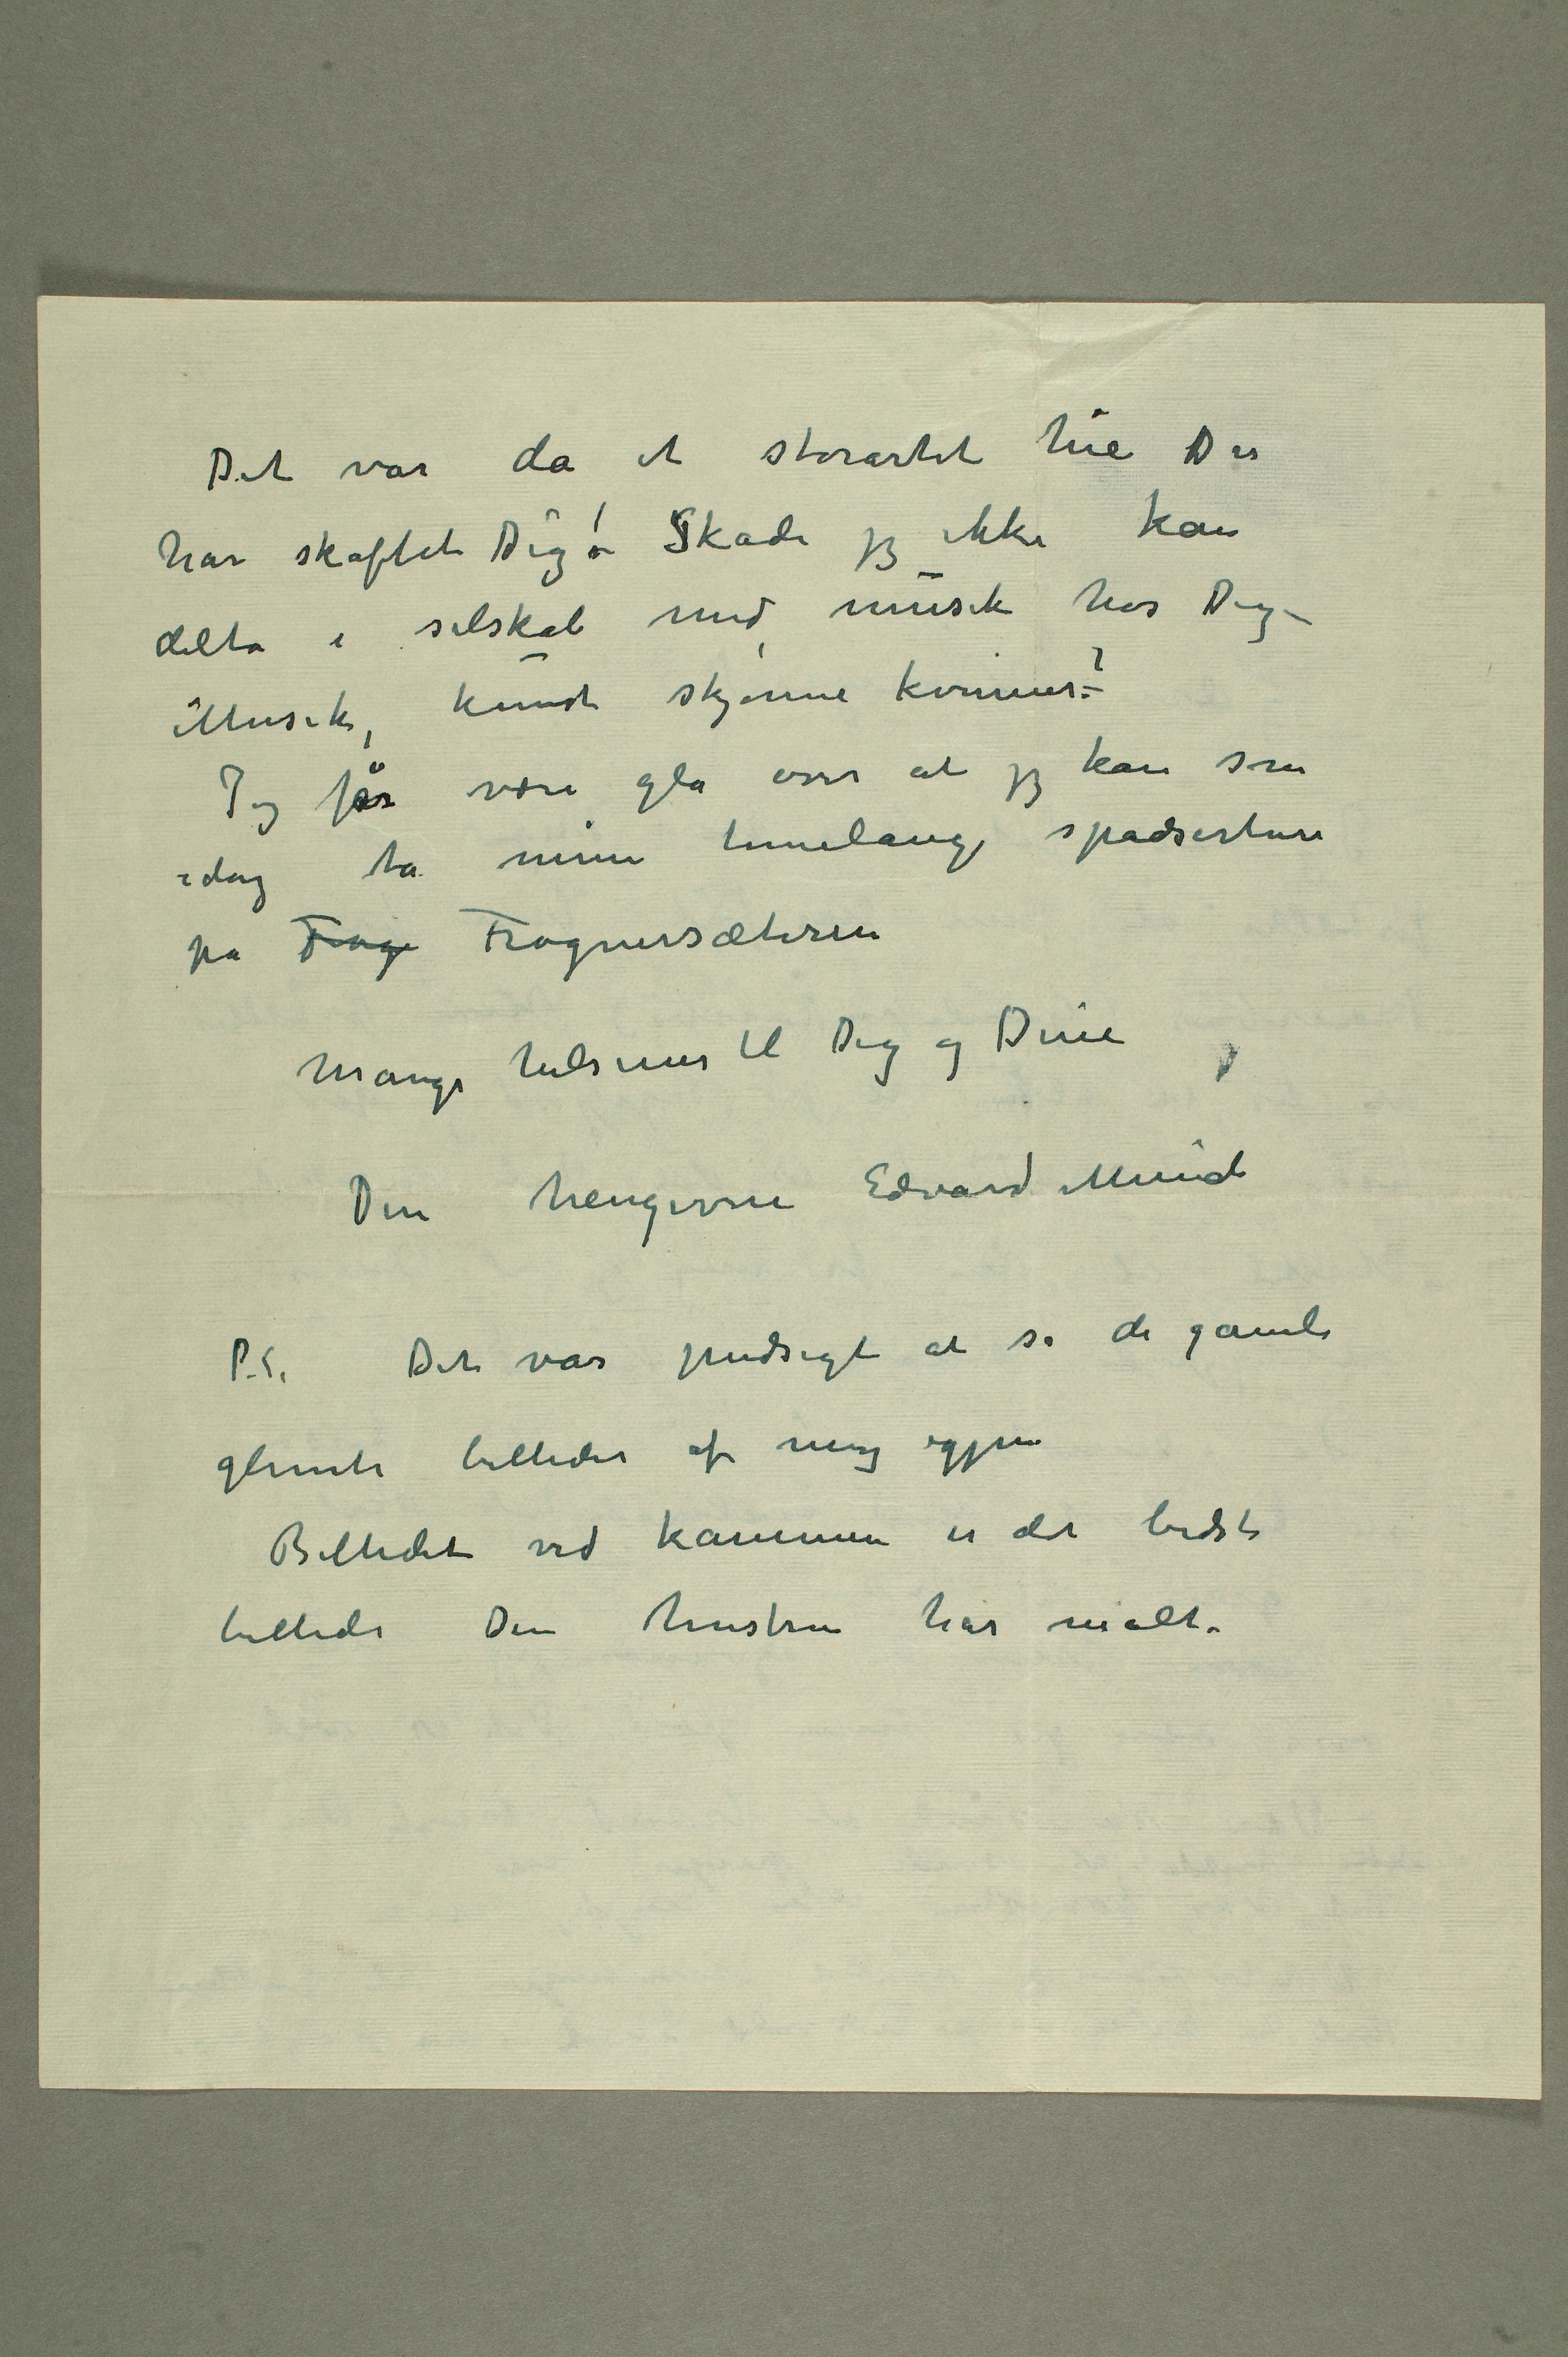 Det var da et storartet hie Du
har skaffet Dig! – Skade jeg ikke kan
delta i selskab med musik hos Dig –
Musik, kunst skjønne kvinner? –
Jeg får være gla over at jeg kan som
idag ta mine timelange spadserture
på Frogn Frognersæteren
Mange hilsener til Dig og Dine
Din hengivne Edvard Munch
P.S. Det var pudsigt at se de gamle
glemte billeder af mig igjen
Billedet ved kaminen er det bedste
billede Din hustru har malt.